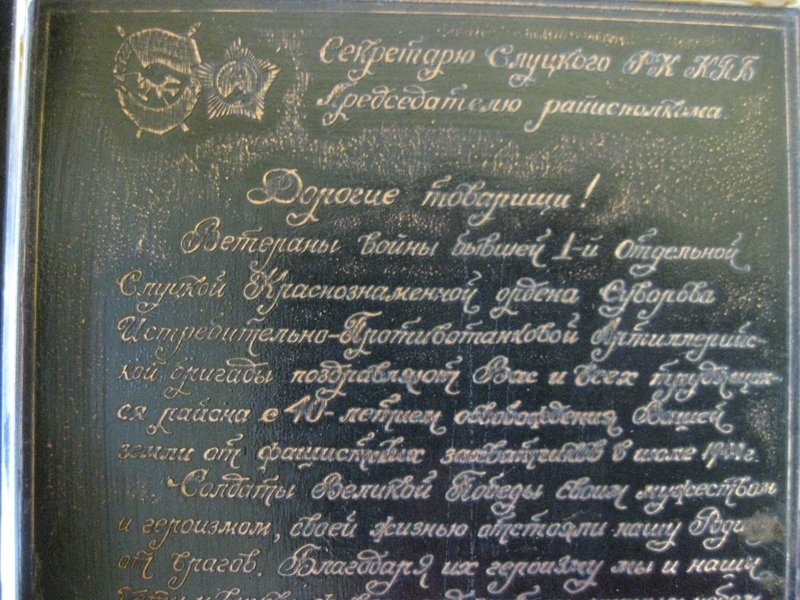 Секретарю Слуцкого РК КПБ
Председателю райисполкома
Дорогие товарищи!
Ветераны войны бывшей 1-й отдельной
Слуцкой Краснознаменной ордена Суворова
Истребительно-Противотанковой Артиллерийс-
кой бригады поздравляют Вас и всех трудящих-
ся района с 40-летием освобождения Вашей
земли от фашистских захватчиков в июле 1944г.
Солдаты Великой Победы своим мужеством
и героизмом, своей жизнью отстояли нашу Роди
от врагов. Благодаря их героизму мы и наши